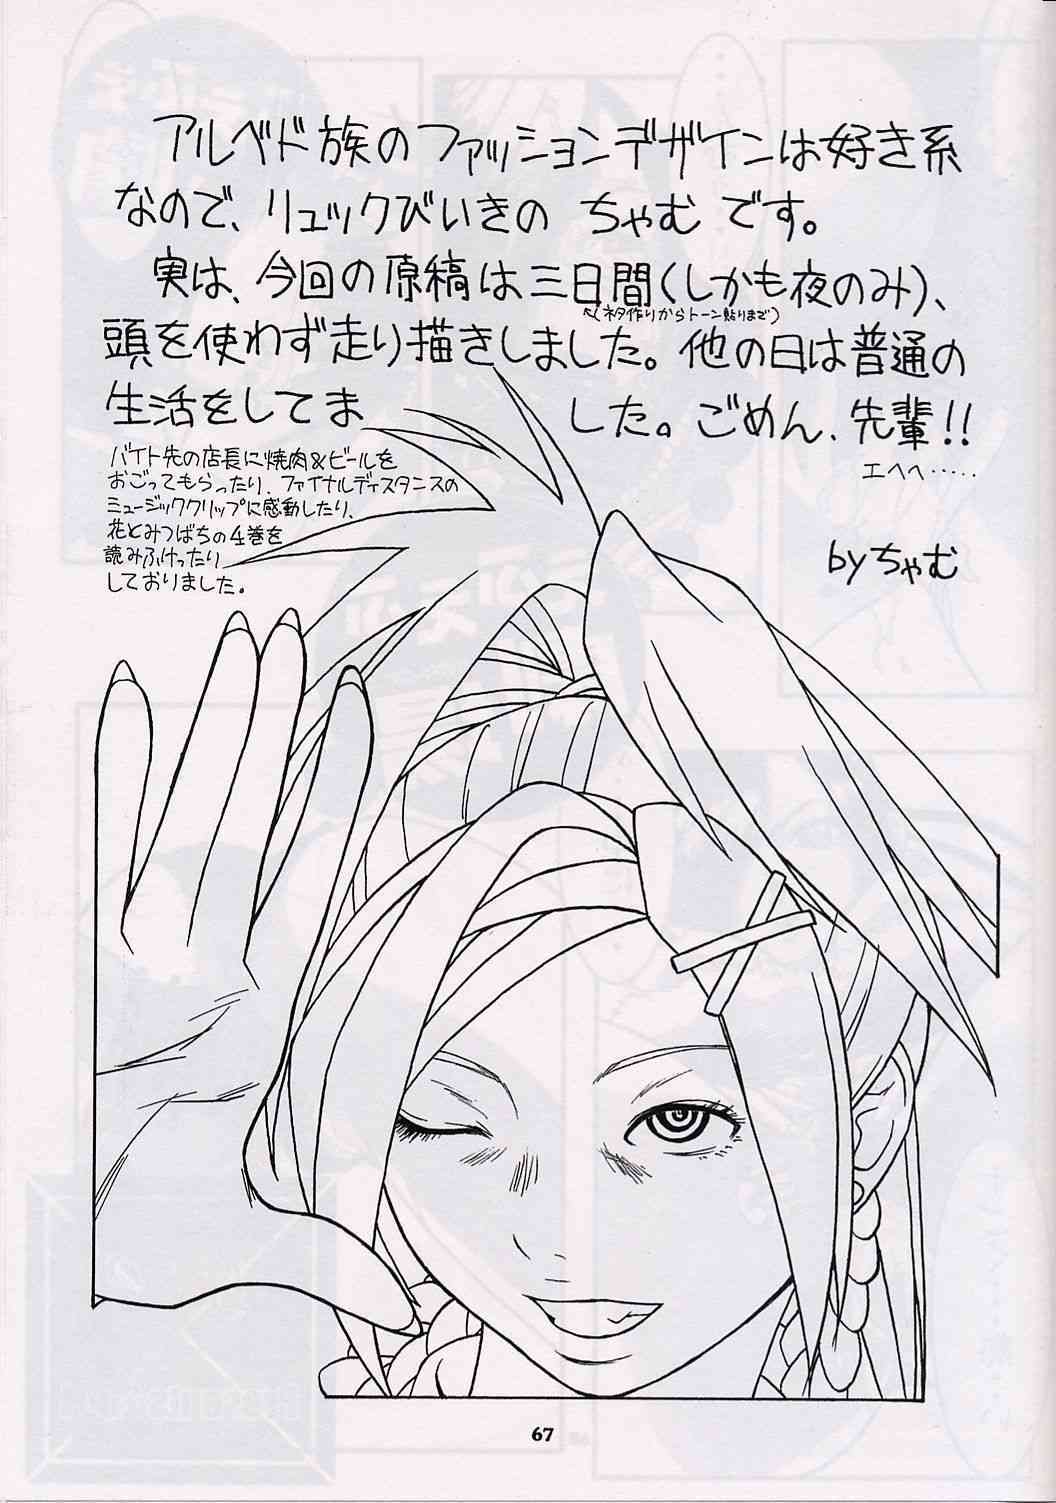 アルベド族のファッションデザインは好き系
なので、リュックびいきの ちゃむ です。
実は、今回の原稿は三日間(しかも夜のみ)、
↖(ネタ作りからトーン貼りまで)
頭を使わず走り描きしました。他の日は普通の
生活をしてま した。ごめん、先輩!!
エヘヘ‥‥‥
バイト先の店長に焼肉&ビールを
おごってもらったり、ファイナルディスタンスの
ミュージッククリップに感動したり、
花とみつばちの4巻を
読みふけったり
しておりました。
byちゃむ
67